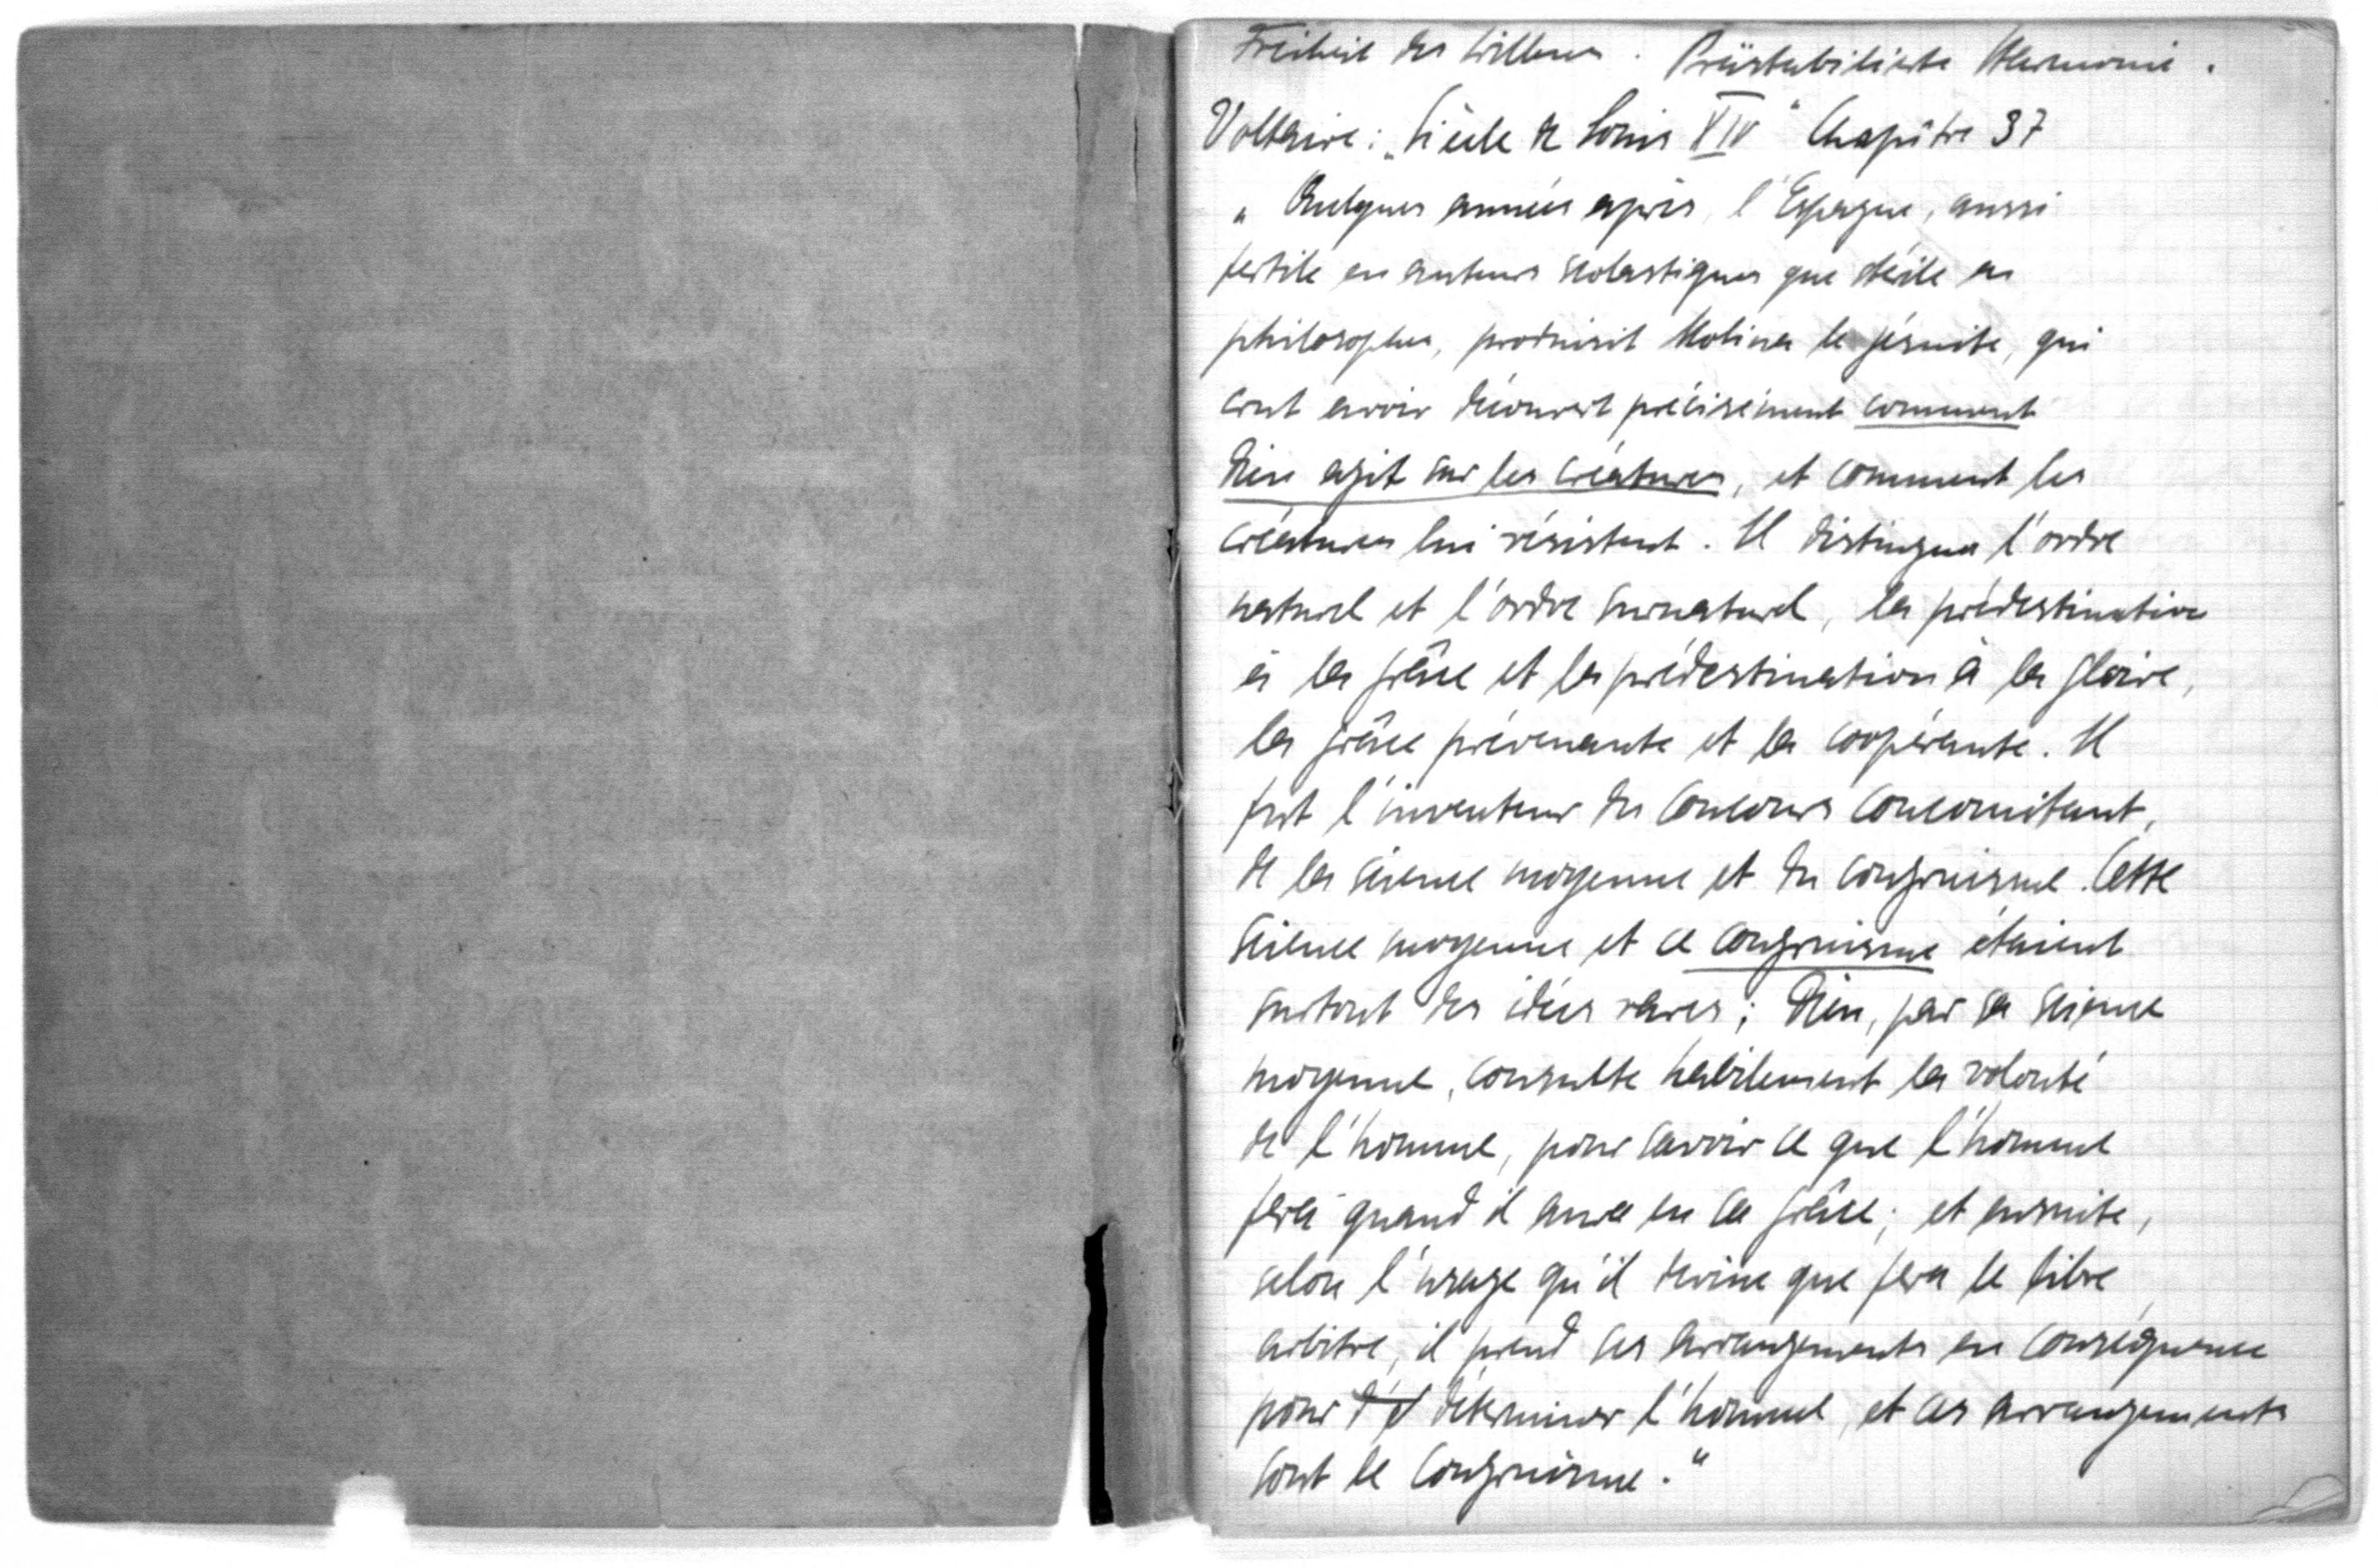 Freiheit des Willens. Prästabilierte Harmonie.
Voltaire: „Siècle de Louis XIV“ Chapître 37
„Quelques années après, l'Espagne, aussi
fertile en auteurs scolastiques que stérile en
philosophes, produisit Molina le jésuite, qui
crut avoir découvert précisément comment
Dieu agit sur les créatures, et comment les
créatures lui résistent. Il distingua l'ordre
naturel et l'ordre surnaturel, la prédestination
à la grâce et la prédestination à la gloire,
la grâce prévenante et la coopérante. Il
fut l'inventeur du concours concomitant,
de la science moyenne et du congruisme. Cette
science moyenne et ce congruisme étaient
surtout des idées rares; Dieu, par sa science
moyenne, consulte habilement la volonté
de l'homme, pour savoir ce que l'homme
fera quand il aura eu la grâce; et ensuite,
selon l'usage qu'il devine que fera le libre
arbitre, il prend ses arrangements en conséquence
pour déterminer l'homme, et ces arrangements
sont le congruisme.“